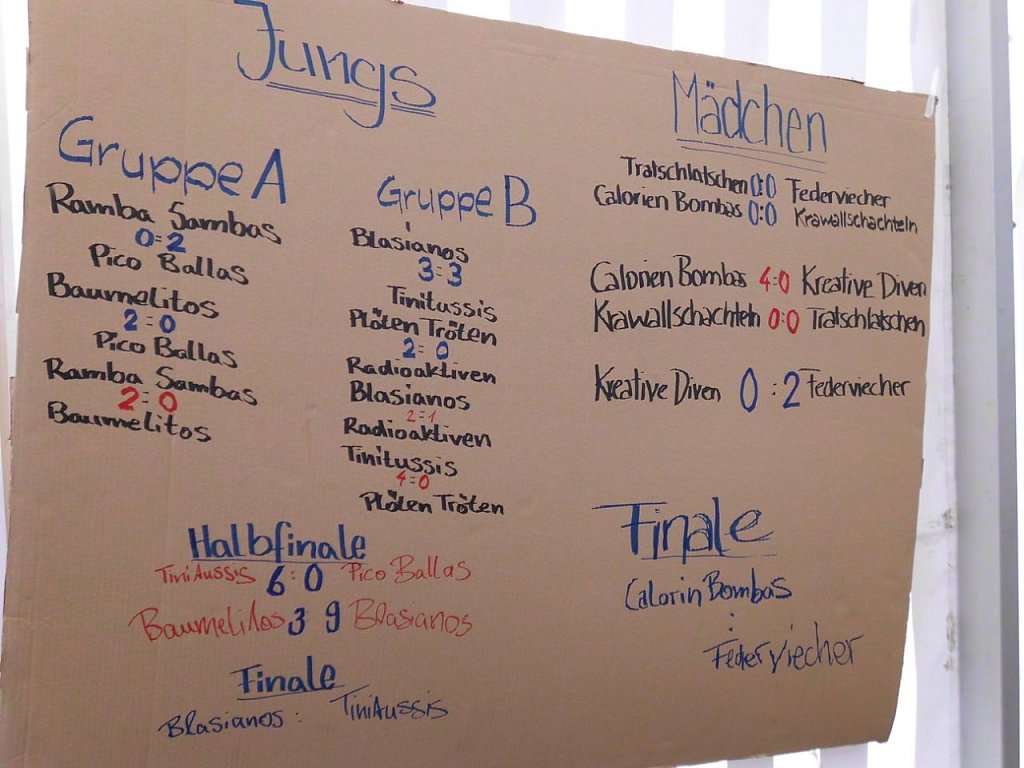 Jungs
Gruppe A
Ramba Sambas
0:2
Pico Ballas
Baumelitos
2:0
Pico Ballas
Ramba Sambas
2:0
Baumelitos
Gruppe B
Blasianos
3:3
Tinitussis
Plöten Tröten
2:0
Radioaktiven
Blasianos
2:1
Radioaktiven
Tinitussis
4:0
Plöten Tröten
Halbfinale
TiniAussis 6:0 Pico Ballas
Baumelitos 3 9 Blasianos
Finale
Blasianos : TiniAussis
Mädchen
Tratschlatschen 0:0 Federviecher
Calorien Bombas 0:0 Krawallschachteln
Calorien Bombas 4:0 Kreative Diven
Krawallschachteln 0:0 Tratschlatschen
Kreative Diven 0:2 Federviecher
Finale
Calorin Bombas
:
Federviecher